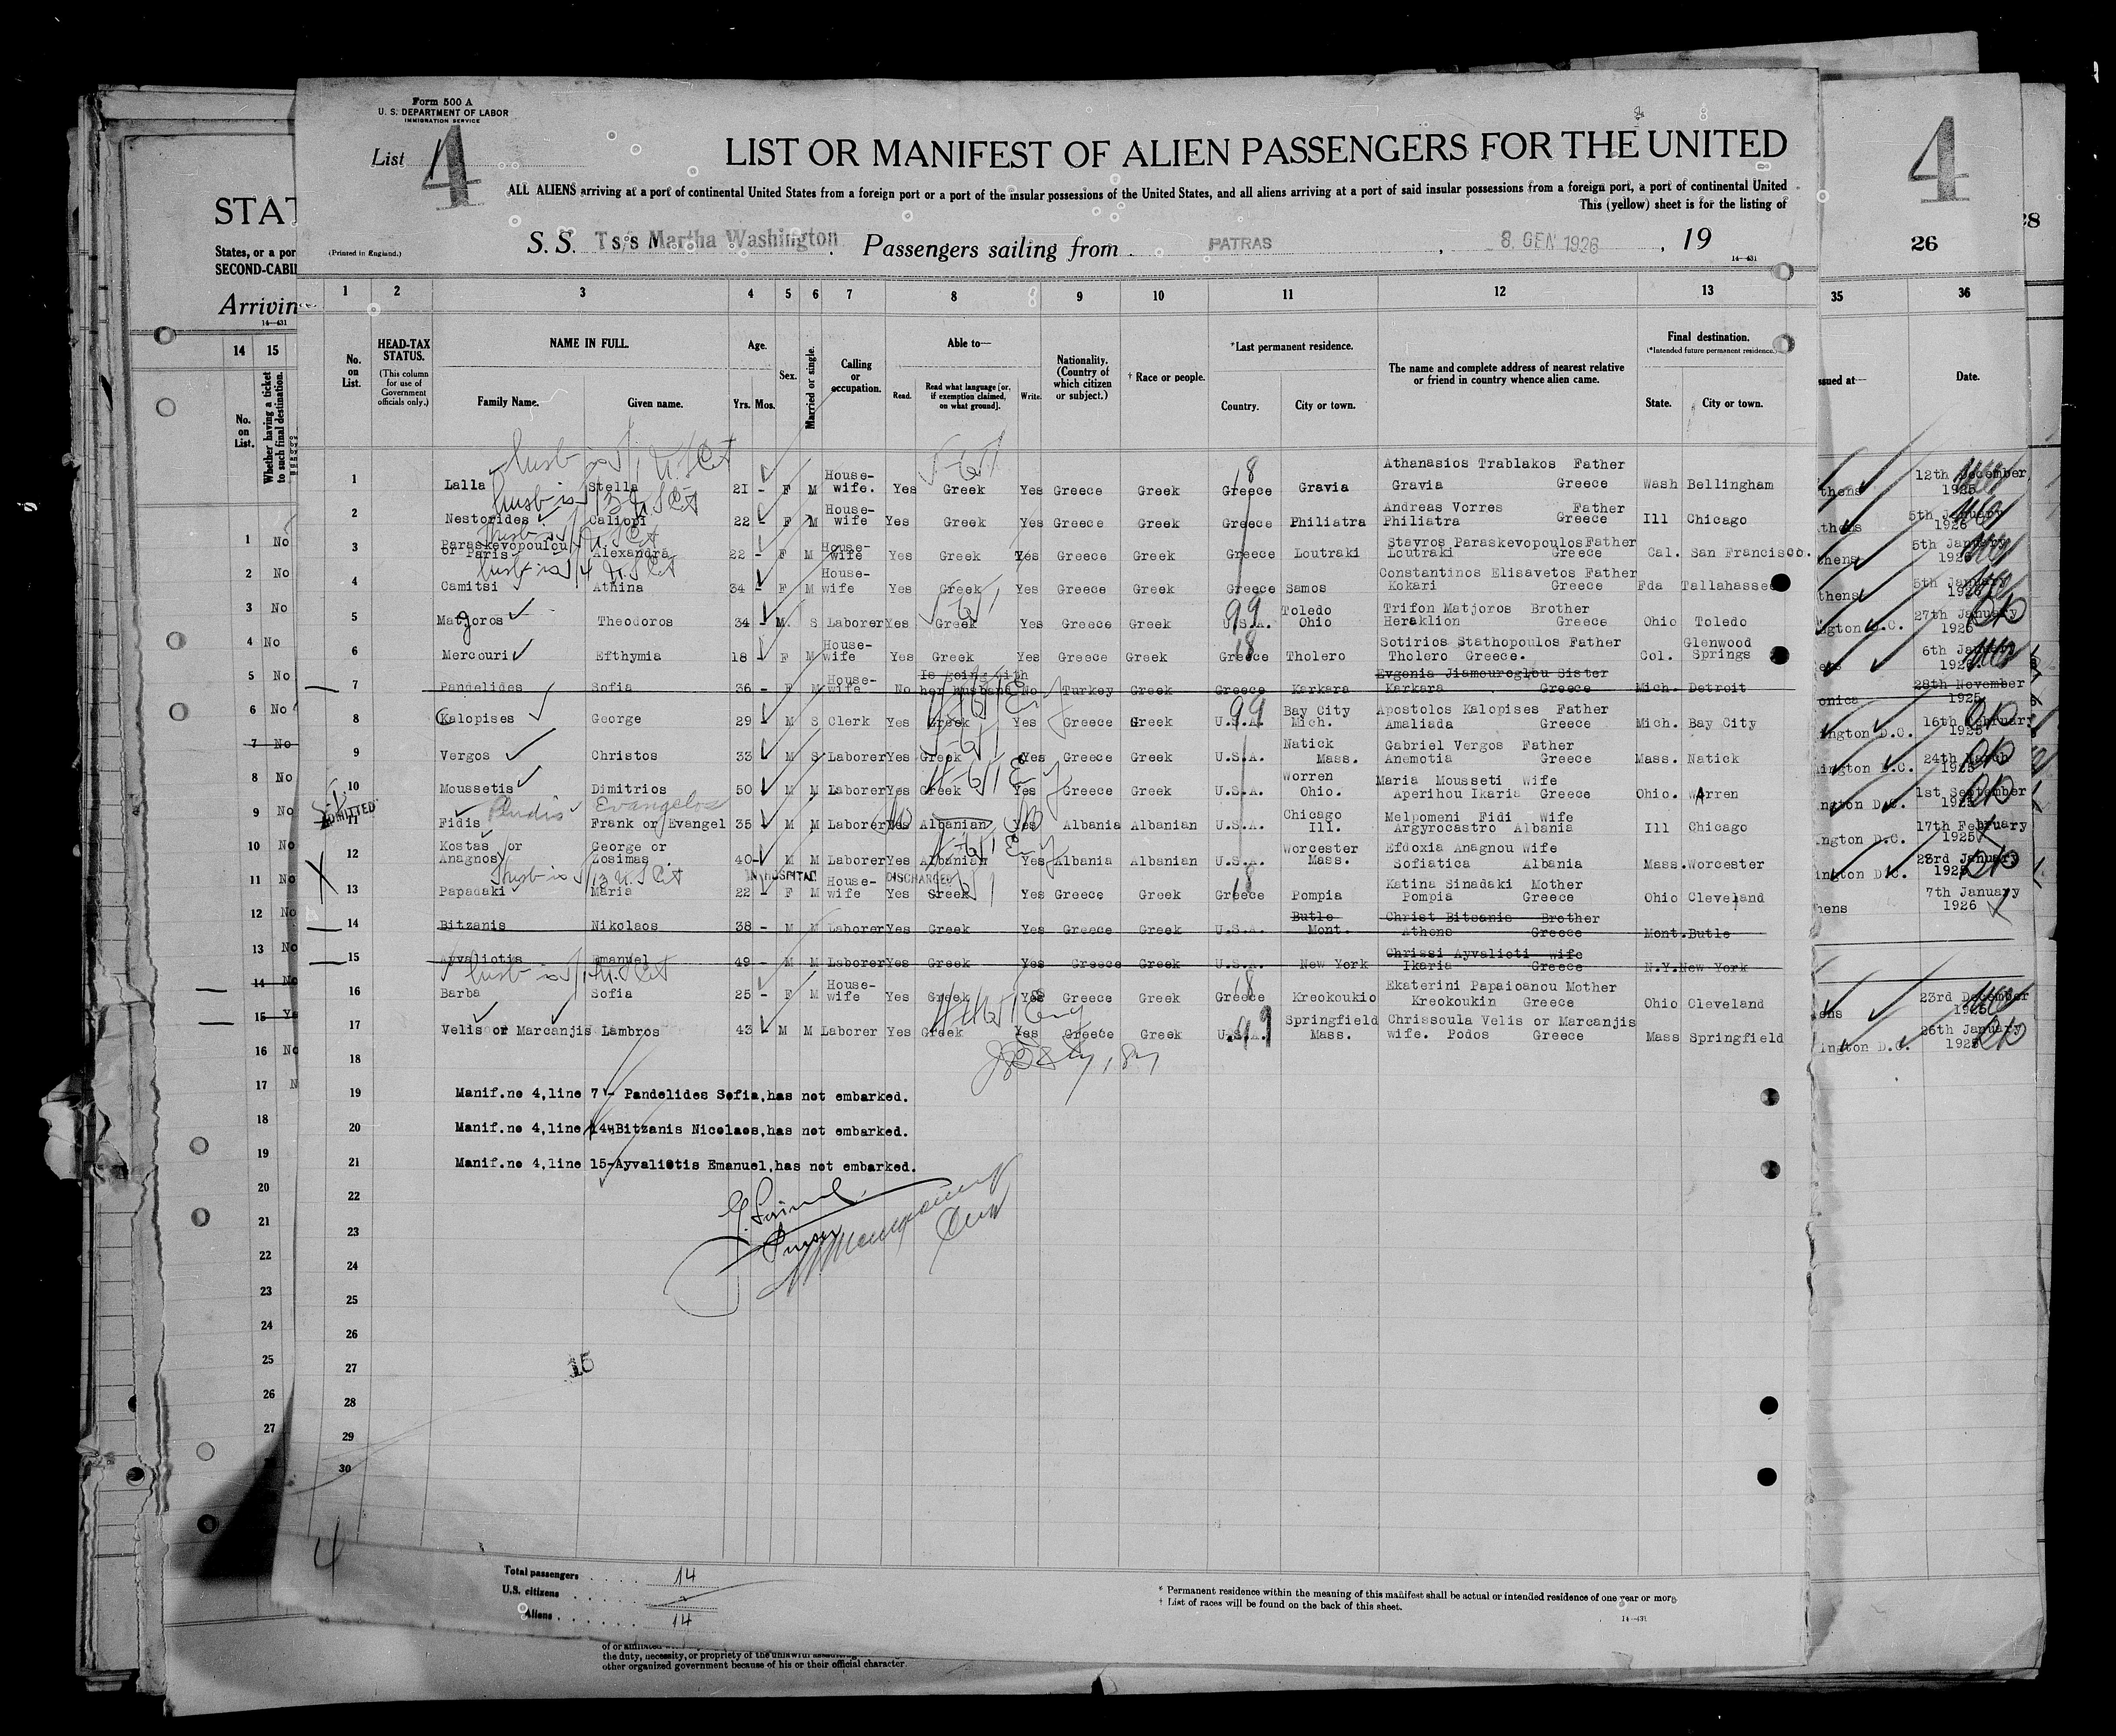 Form 500 A
U. S. DEPARTMENT OF LABOR
IMMIGRATION SERVICE
List 4
LIST OR MANIFEST OF ALIEN PASSENGERS FOR THE UNITED
ALL ALIENS arriving at a port of continental United States from a foreign port or a port of the insular possessions of the United States, and all aliens arriving at a port of said insular possessions from a foreign port, a port of continental United
This (yellow) sheet is for the listing of
(Printed in England.)
S. S. Ts/s Martha Washington Passengers sailing from PATRAS, 8 GEN 1926, 19
14—431
STAT
States, or a por
SECOND-CABI
Arrivin
14—431
4
26
28
1 2 3 4 5 6 7 8 9 10 11 12 13
14 15
35 36
No. on List.
HEAD-TAX STATUS.
(This column for use of Government officials only.)
NAME IN FULL.
Family Name. Given name.
Age.
Yrs. Mos.
Sex.
Married or single.
Calling or occupation.
Able to—
Read. Read what language [or, if exemption claimed, on what ground]. Write.
Nationality. (Country of which citizen or subject.)
† Race or people.
*Last permanent residence.
Country. City or town.
The name and complete address of nearest relative or friend in country whence alien came.
Final destination.
(*Intended future permanent residence.)
State. City or town.
No. on List.
Whether having a ticket to such final destination.
ssued at— Date.
1 Lalla Stella 21 - F M House-wife. Yes Greek Yes Greece Greek Greece Gravia Athanasios Trablakos Father Gravia Greece Wash Bellingham 12th December 1925
2 Nestorides Caliopi 22 - F M House-wife Yes Greek Yes Greece Greek Greece Philiatra Andreas Vorres Father Philiatra Greece Ill Chicago 5th January 1926
3 Paraskevopoulou or Paris Alexandra 22 - F M House-wife Yes Greek Yes Greece Greek Greece Loutraki Stavros Paraskevopoulos Father Loutraki Greece Cal. San Francisco. 5th January 1926
4 Camitsi Athina 34 - F M House-wife Yes Greek Yes Greece Greek Greece Samos Constantinos Elisavetos Father Kokari Greece Fda Tallahassee 5th January 1926
5 Matjoros Theodoros 34 - M. S Laborer Yes Greek Yes Greece Greek U.S.A. Toledo Ohio Trifon Matjoros Brother Heraklion Greece Ohio Toledo 27th January 1925
6 Mercouri Efthymia 18 - F M House-wife Yes Greek Yes Greece Greek Greece Tholero Sotirios Stathopoulos Father Tholero Greece. Col. Glenwood Springs 6th January 1926
7 Pandelides Sofia 36 - F M House-wife No Is going with her husband No Turkey Greek Greece Karkara Evgenia Jiamouroglou Sister Karkara Greece Mich. Detroit 28th November 1925
8 Kalopises George 29 M S Clerk Yes Greek Yes Greece Greek U.S.A. Bay City Mich. Apostolos Kalopises Father Amaliada Greece Mich. Bay City 16th February 1925
9 Vergos Christos 33 M S Laborer Yes Greek Yes Greece Greek U.S.A. Natick Mass. Gabriel Vergos Father Anemotia Greece Mass. Natick 24th March 1925
10 Moussetis Dimitrios 50 M M Laborer Yes Greek Yes Greece Greek U.S.A. Worren Ohio. Maria Mousseti Wife Aperihou Ikaria Greece Ohio. Warren 1st September 1925
ADMITTED
11 Fidis Evangelos Frank or Evangel 35 M M Laborer Yes Albanian Yes Albania Albanian U.S.A. Chicago Ill. Melpomeni Fidi Wife Argyrocastro Albania Ill Chicago 17th February 1925
12 Kostas or Anagnos George or Zosimas 40- M M Laborer Yes Albanian Yes Albania Albanian U.S.A. Worcester Mass. Efdoxia Anagnou Wife Sofiatica Albania Mass. Worcester 23rd January 1925
IN HOSPITAL DISCHARGED
13 Papadaki Maria 22 - F M House-wife Yes Greek Yes Greece Greek Greece Pompia Katina Sinadaki Mother Pompia Greece Ohio Cleveland 7th January 1926
14 Bitzanis Nikolaos 38 - M M Laborer Yes Greek Yes Greece Greek U.S.A. Butle Mont. Christ Bitsanis Brother Athens Greece Mont. Butle
15 Ayvaliotis Emanuel 49 - M M Laborer Yes Greek Yes Greece Greek U.S.A. New York Chrissi Ayvalioti Wife Ikaria Greece N.Y. New York
16 Barba Sofia 25 - F M House-wife Yes Greek Yes Greece Greek Greece Kreokoukio Ekaterini Papaioanou Mother Kreokoukin Greece Ohio Cleveland 23rd December 1925
17 Velis or Marcanjis Lambros 43 M M Laborer Yes Greek Yes Greece Greek U.S.A. Springfield Mass. Chrissoula Velis or Marcanjis wife. Podos Greece Mass Springfield 26th January 1925
18
19 Manif.no 4,line 7 - Pandelides Sofia,has not embarked.
20 Manif.no 4,line 14-Bitzanis Nicolaos,has not embarked.
21 Manif.no 4,line 15-Ayvaliotis Emanuel,has not embarked.
22
23 Purser
24
25
26
27 15
28
29
30
4
Total passengers 14
U.S. citizens
Aliens 14
* Permanent residence within the meaning of this manifest shall be actual or intended residence of one year or more
† List of races will be found on the back of this sheet.
14—431
the duty, necessity, or propriety of the unlawful
other organized government because of his or their official character.